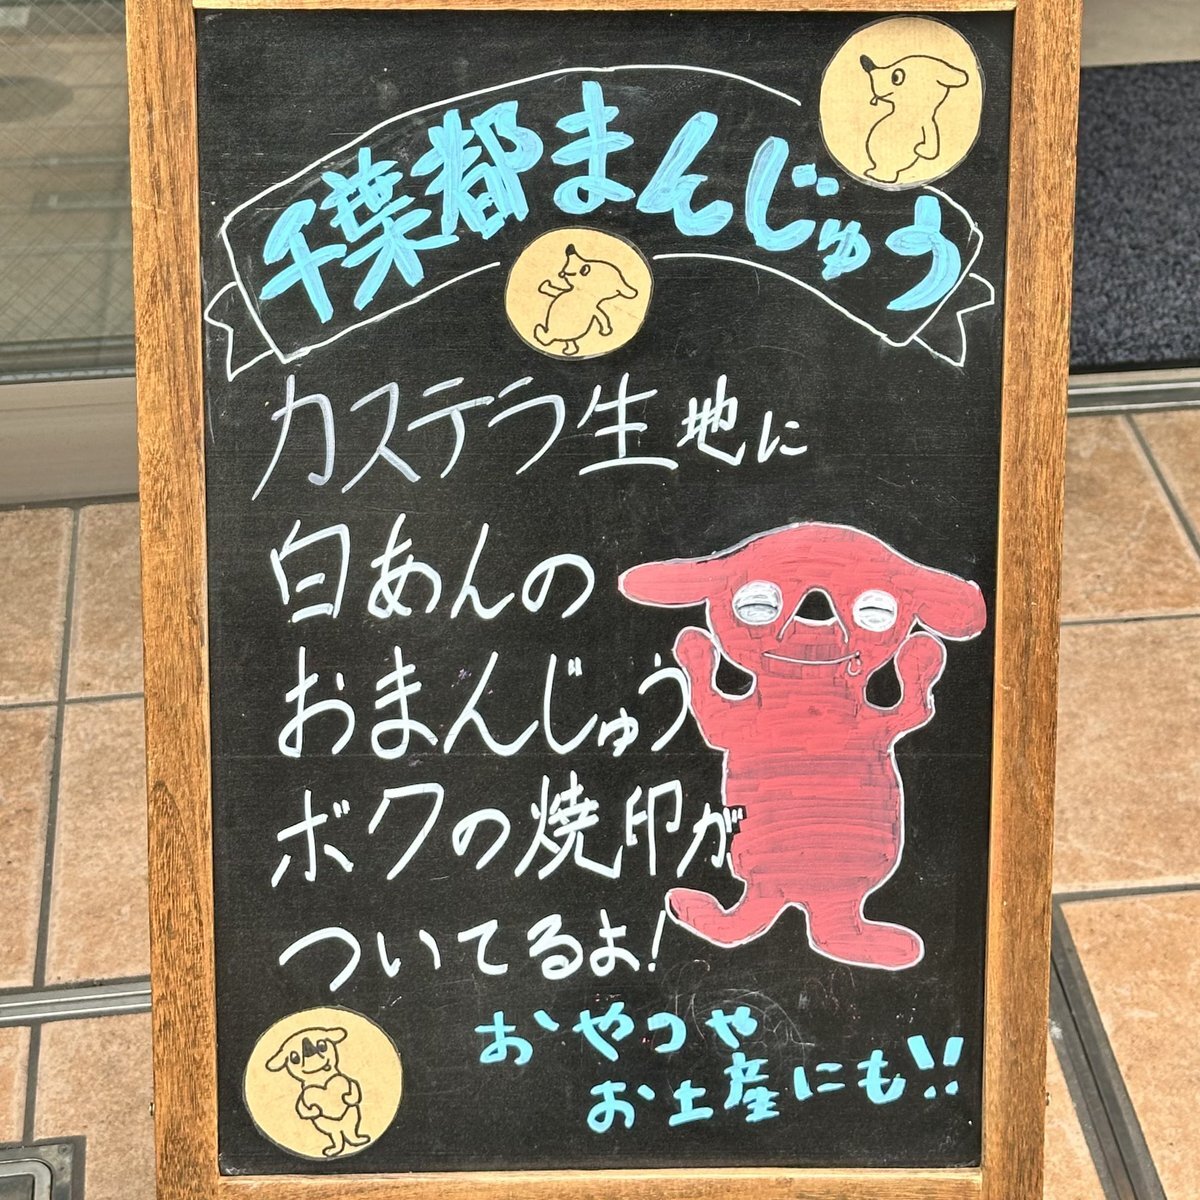 千葉都まんじゅう
カステラ生地に
白あんの
おまんじゅう
ボクの焼印が
ついてるよ!
おやつや
お土産にも!!